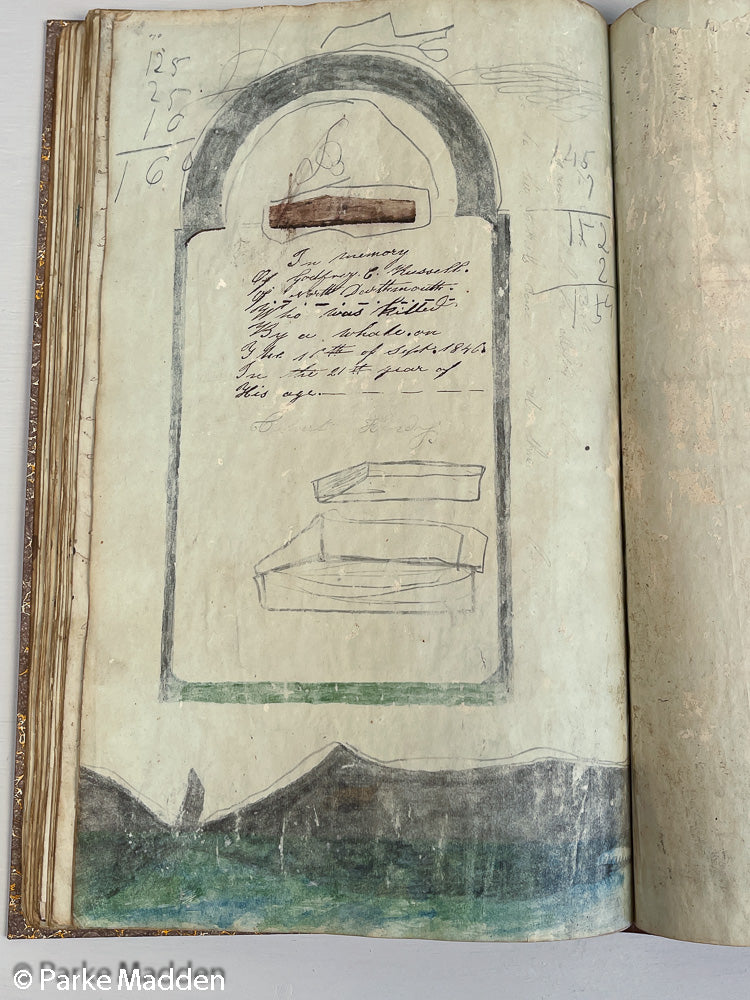 125
25
10
160
145
7
152
2
15
In memory
Of Godfrey. C. Russell.
Of North Dartmouth.
Who was killed
By a whale. on
The 16th of Sept. 1846.
In the 21th year of
His age. — — — —
© Parke Madden